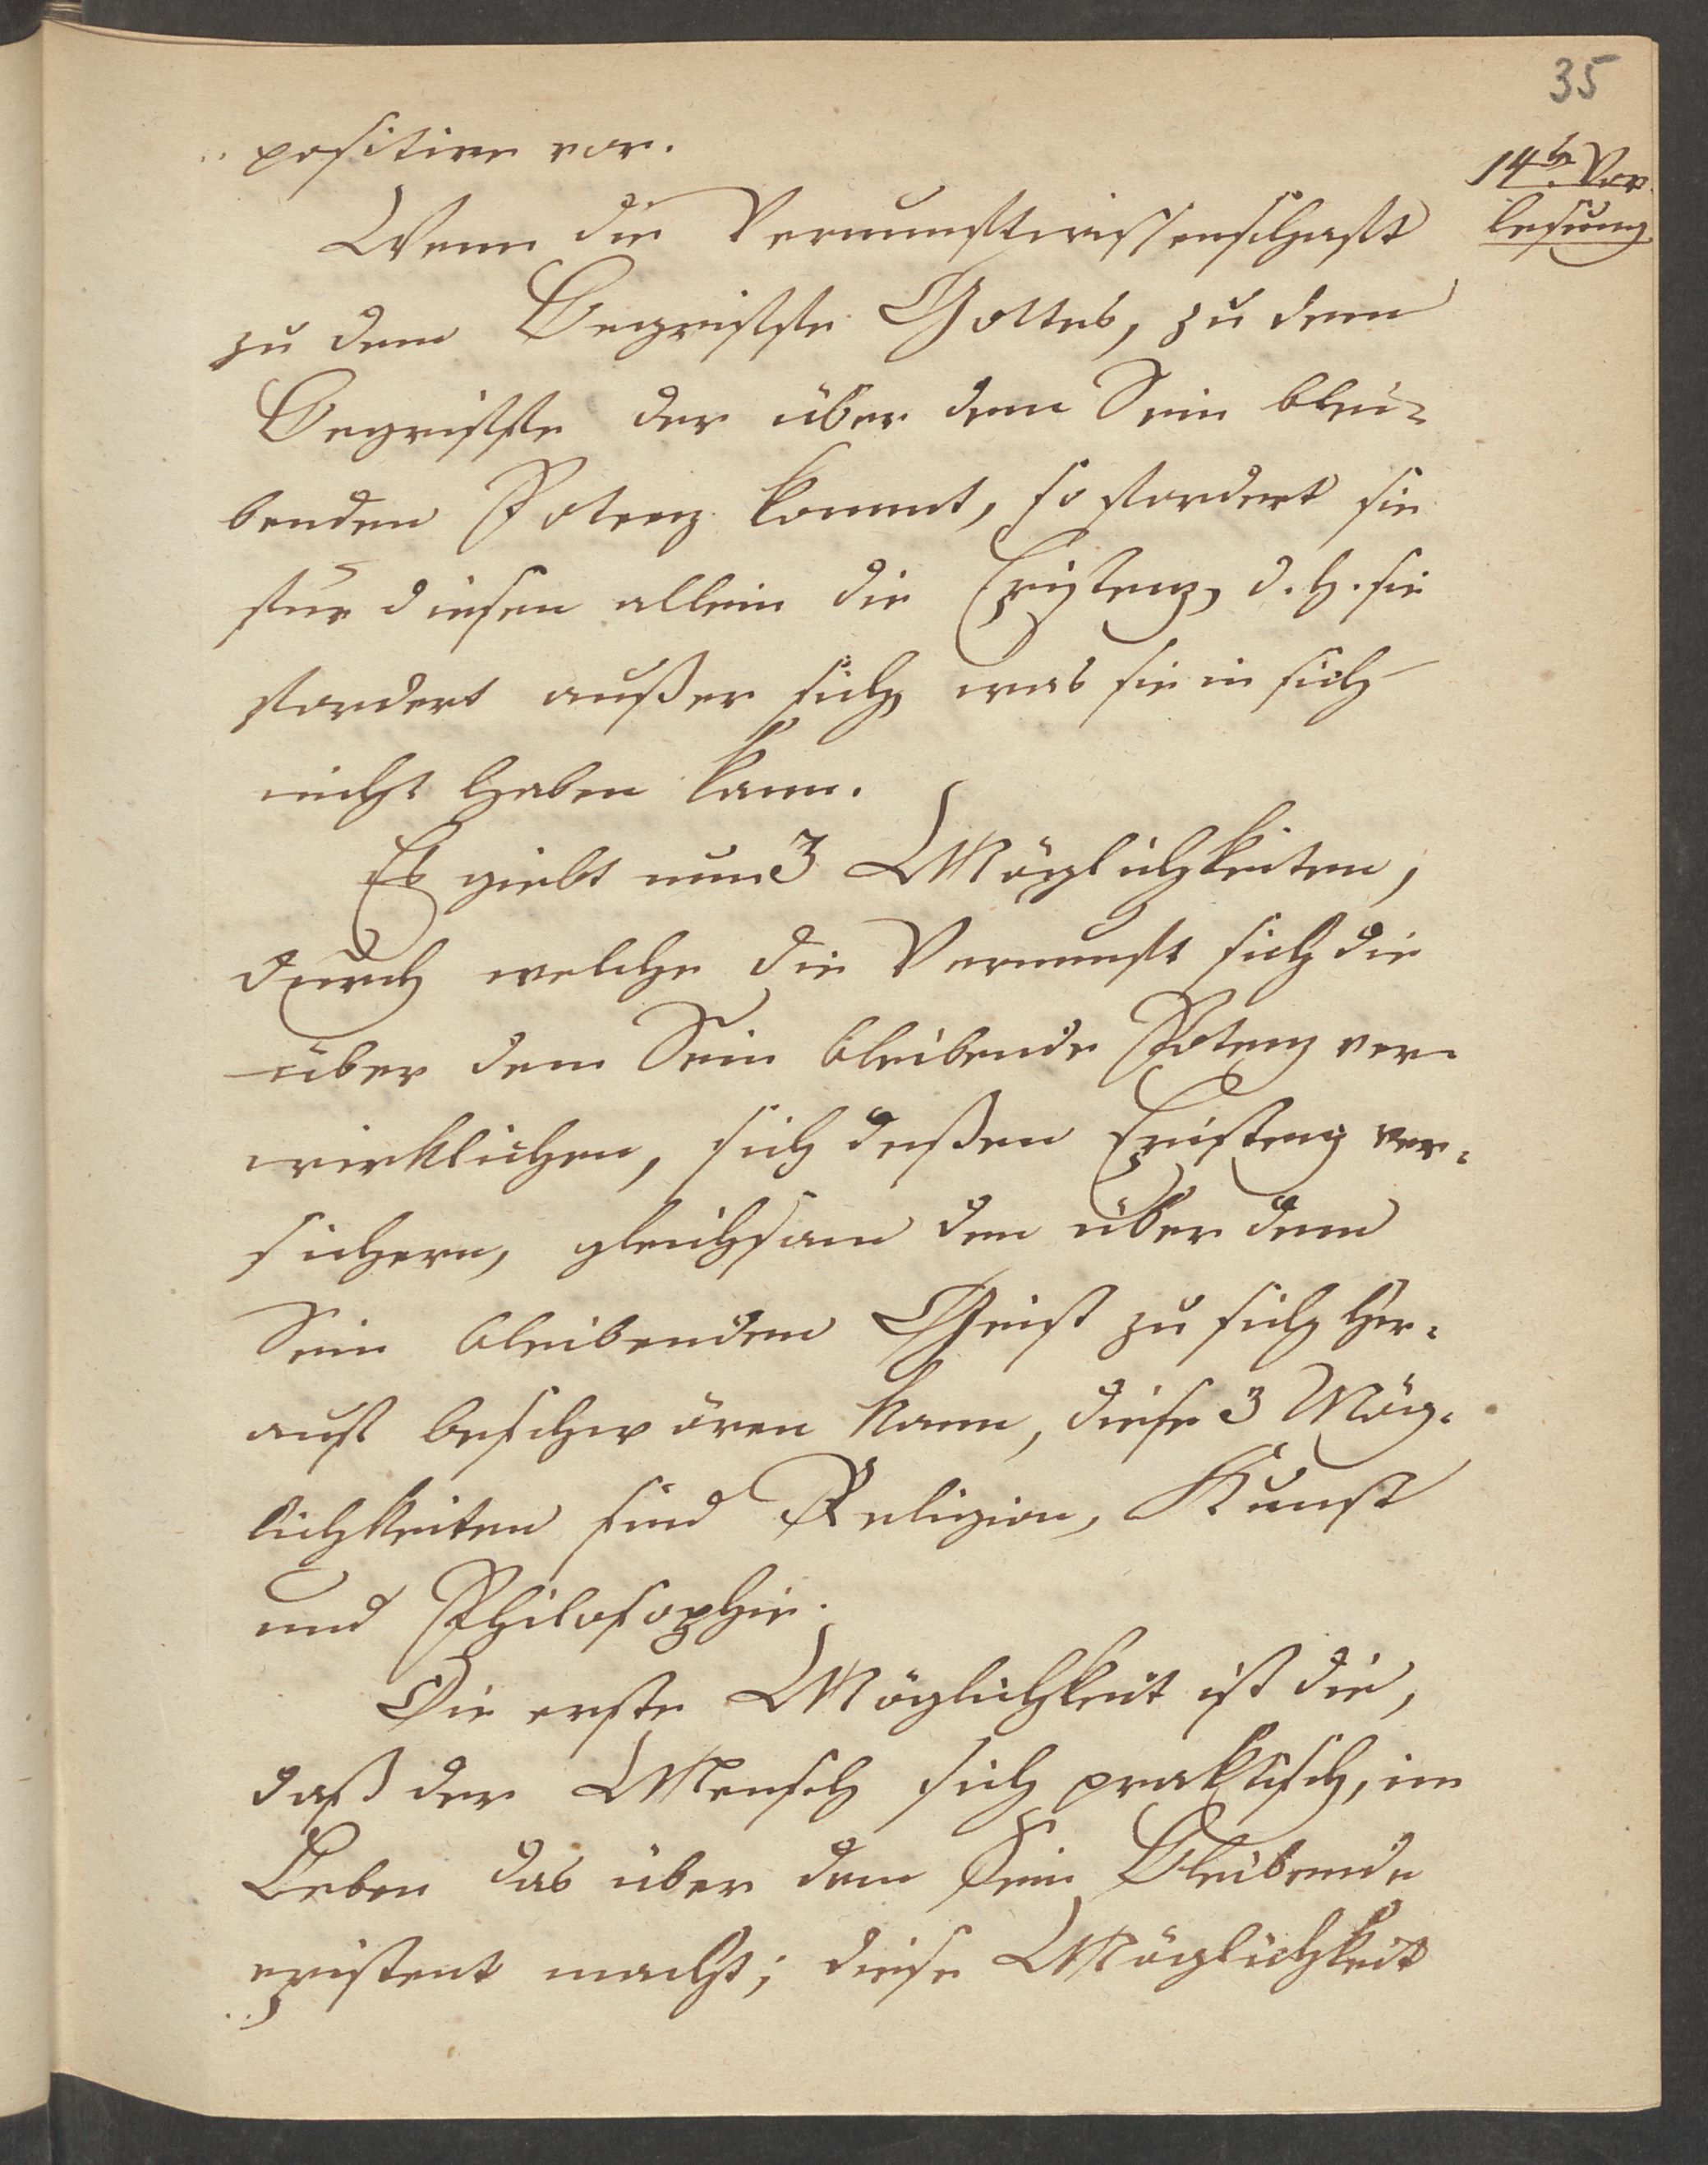 35
positive vor.
14te Vor-
lesung
Wenn die Vernunftwissenschaft
zu dem Begriffe Gottes, zu dem
Begriffe der über dem Sein blei-
benden Potenz kommt, so fordert sie
für diesen allein die Existenz, d. h. sie
fordert außer sich, was sie in sich
nicht haben kann.
Es giebt nun 3 Möglichkeiten,
durch welche die Vernunft sich die
über dem Sein bleibende Potenz ver-
wirklichen, sich deßen Existenz ver-
sichern, gleichsam den über dem
Sein bleibenden Geist zu sich her-
auf beschwören kann, diese 3 Mög-
lichkeiten sind Religion, Kunst
und Philosophie.
Die erste Möglichkeit ist die,
daß der Mensch sich praktisch, im
Leben das über dem Sein Bleibende
existent macht; diese Möglichkeit